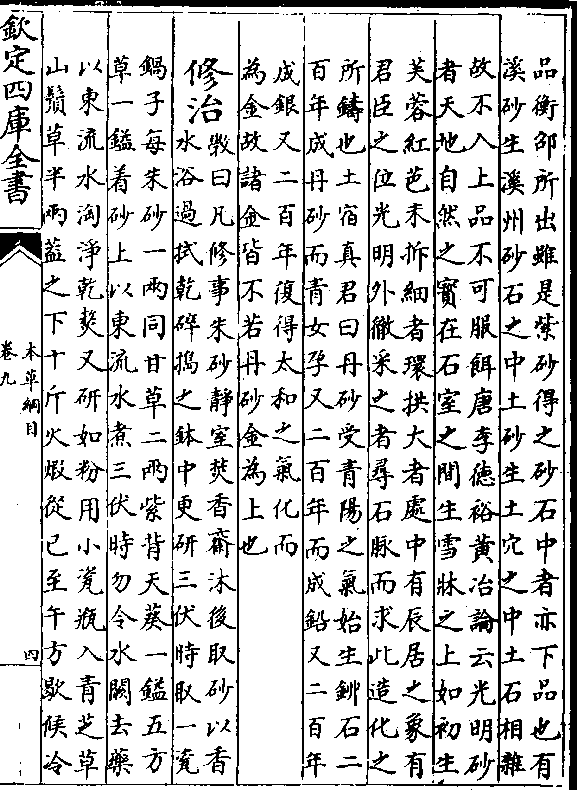 品衡邵所出雖是紫砂得之砂石中者亦下品也有
溪砂生溪州砂石之中土砂生土穴之中土石相雜
故不入上品不可服餌唐李德裕黃冶論云光明砂
者天地自然之寳在石室之間生雪牀之上如初生
芙蓉紅芭未拆細者環拱大者處中有辰居之象有
君臣之位光明外徹采之者尋石脉而求此造化之
所鑄也土宿真君曰丹砂受青陽之氣始生鉚石二
百年成丹砂而青女孕又二百年而成鉛又二百年
成銀又二百年復得太和之氣化而
為金故諸金皆不若丹砂金為上也
修治
斆曰凡修事朱砂靜室焚香齋沐後取砂以香
水浴過拭乾碎搗之鉢中更研三伏時取一瓷
鍋子每朱砂一兩同甘草二兩紫背天葵一鎰五方
草一鎰着砂上以東流水煮三伏時勿令水闕去藥
以東流水淘淨乾熬又研如粉用小瓷瓶入青芝草
山鬚草半兩葢之下十斤火煅從巳至午方歇候冷
欽定四庫全書
本草綱目
卷九
四